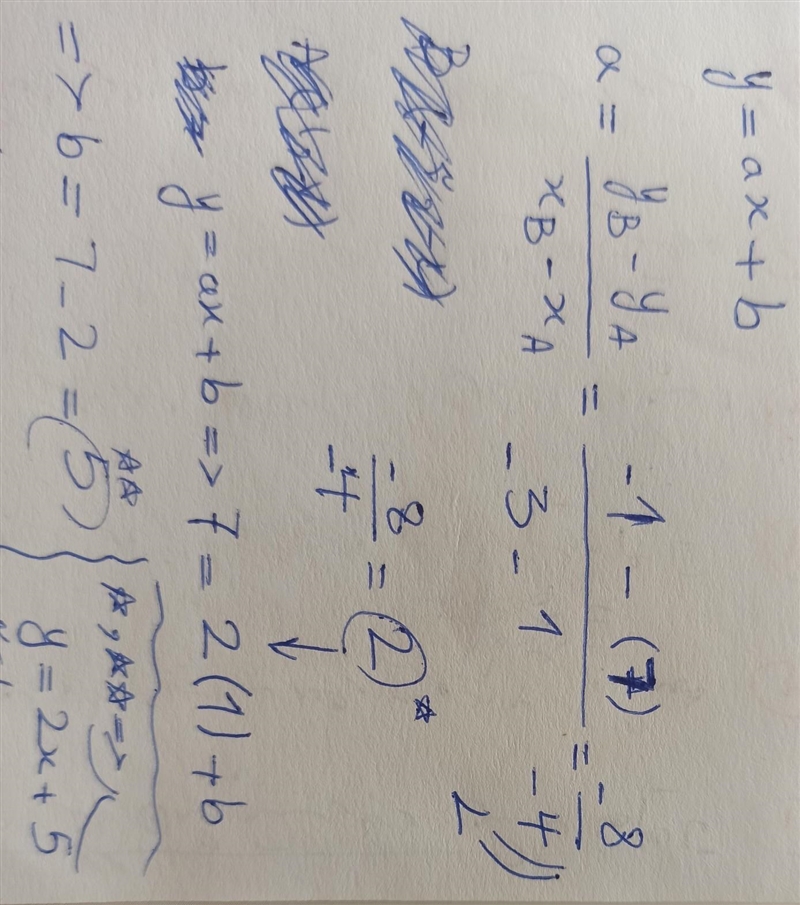 y = ax + b
a = (y_B - y_A) / (x_B - x_A) = (-1 - (7)) / (-3 - 1) = -8 / -4
-8 / -4 = 2 ☆
y = ax + b => 7 = 2(1) + b
=> b = 7 - 2 = 5 ☆☆
☆, ☆☆ =>
y = 2x + 5